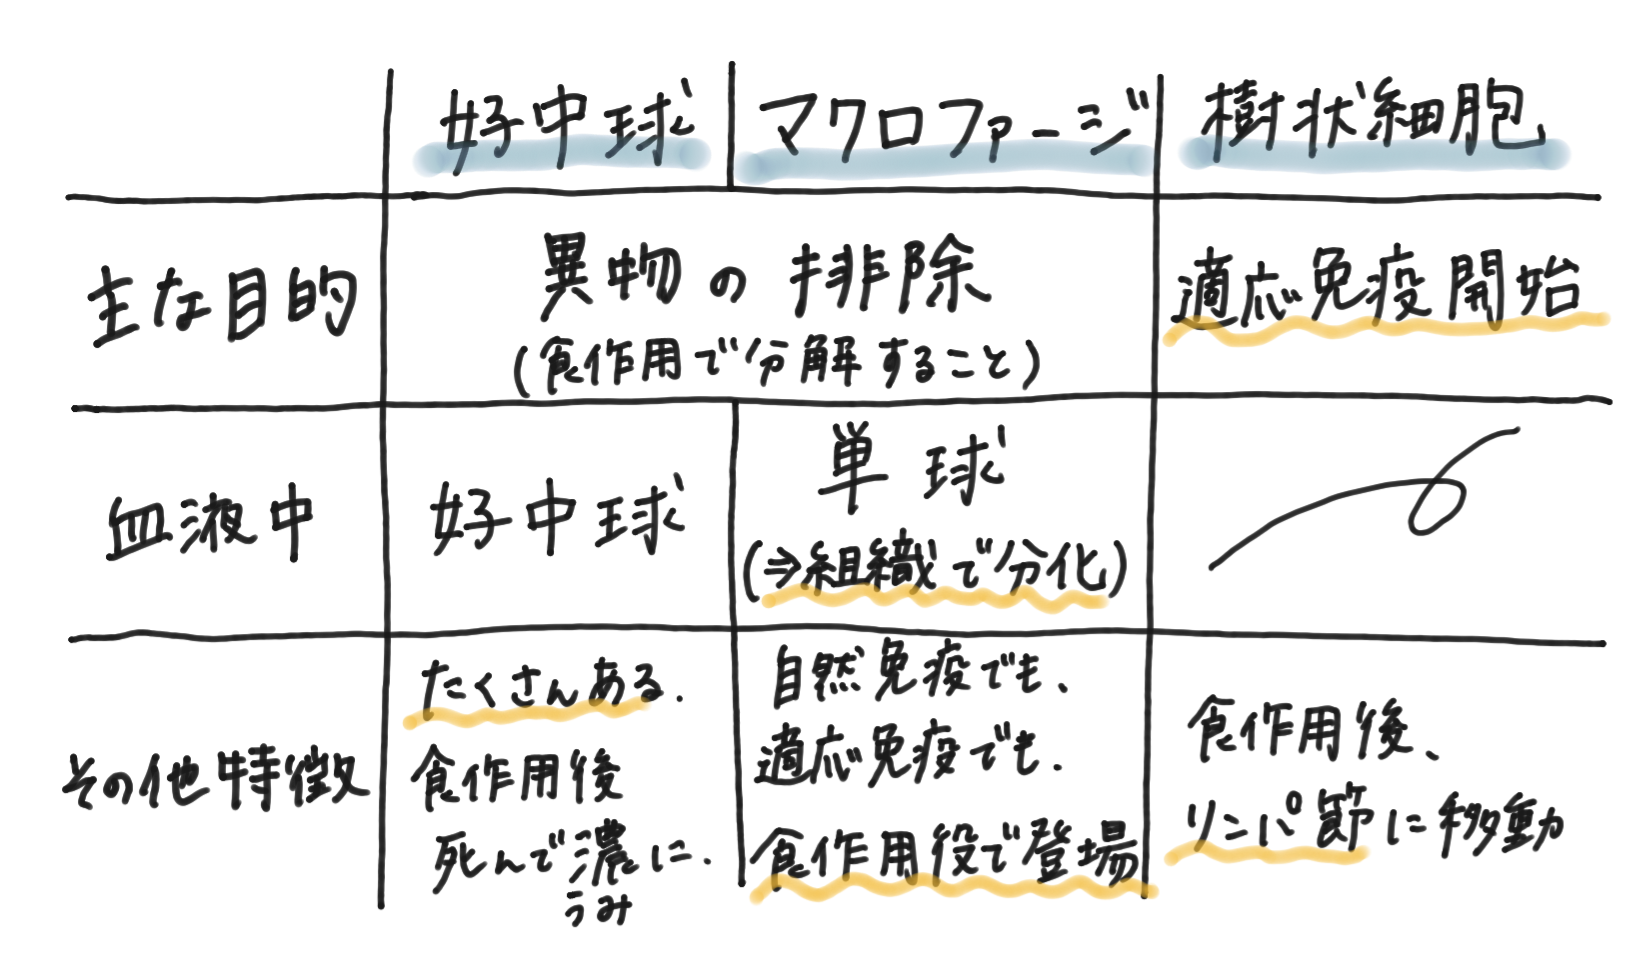 好中球 マクロファージ 樹状細胞
主な目的 異物の排除 適応免疫開始
(食作用で分解すること)
血液中 好中球 単球
(⇒組織で分化)
その他特徴
たくさんある.
食作用後
死んで濃に.
うみ
自然免疫でも、
適応免疫でも.
食作用役で登場
食作用後、
リンパ節に移動